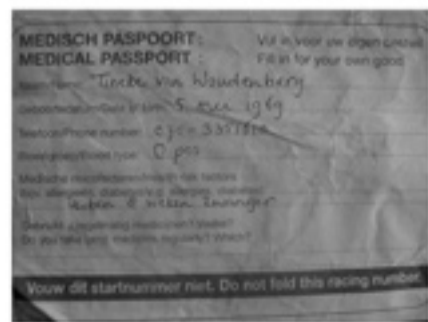 MEDISCH PASPOORT: Vul in voor uw eigen
MEDICAL PASSPORT: Fill in for your own good
Naam/Name: Tineke van Woudenberg
Geboortedatum/Date of birth: 5 1969
Telefoon/Phone number:
Bloedgroep/Blood type: O pos
Medische risicofactoren/Health risk factors
Bijv. allergieën, diabetes/e.g. allergies, diabetes:
6 weken zwanger
Gebruikt u regelmatig medicijnen? Welke?
Do you take any medicine regularly? Which?
Vouw dit startnummer niet. Do not fold this racing number.